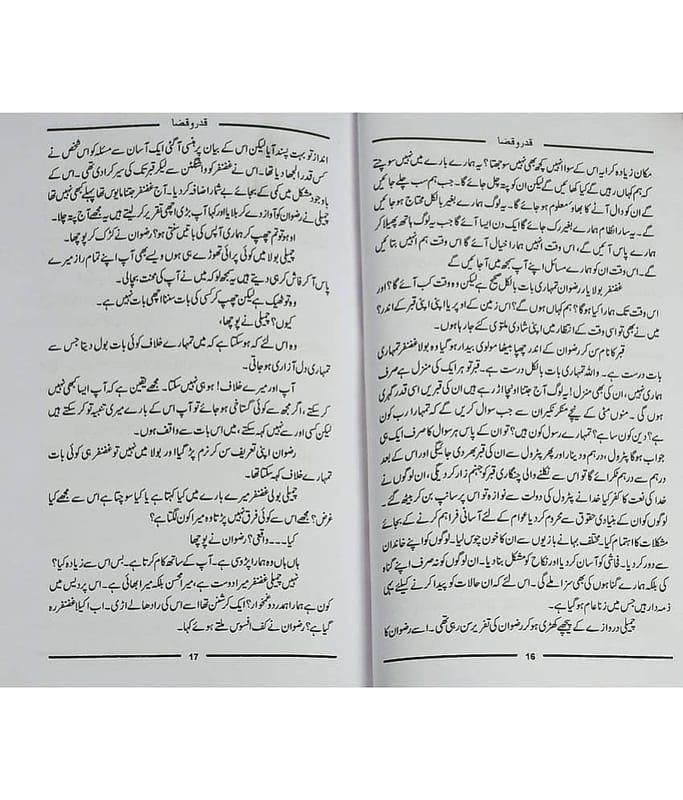 قدر و قضا
مکان زیادہ کرایہ اس کے سوا انہیں کچھ بھی نہیں سوجھتا؟ یہ ہمارے بارے میں نہیں سوچتے
کہ ہم کہاں رہیں گے کیا کھائیں گے لیکن ان کو پتہ چل جائے گا۔ جب ہم سب چلے جائیں
گے ان کو دال آنے کا بھاؤ معلوم ہو جائے گا۔ یہ لوگ ہمارے بغیر بالکل محتاج ہو جائیں
گے۔ یہ سارا نظام ہمارے بغیر رک جائے گا ایک دن ایسا آئے گا جب یہ لوگ ہاتھ پھیلا کر
ہمارے پاس آئیں گے، اس وقت انہیں ہمارا خیال آئے گا اس وقت ہم انہیں بتائیں
گے۔ اس وقت ان کو ہمارے مسائل اپنے آپ سمجھ میں آ جائیں گے
غضنفر بولا یار رضوان تمہاری بات بالکل صحیح ہے لیکن وہ وقت کب آئے گا؟ اور
اس وقت تک ہمارا کیا ہوگا؟ ہم کہاں ہوں گے؟ اس زمین کے اوپر یا اپنی اپنی قبر کے اندر؟
میں نے بھی تو اسی وقت کے انتظار میں اپنی شادی ملتوی کئے جا رہا ہوں۔
قبر کا نام سن کر رضوان کے اندر چھپا بیٹھا مولوی بیدار ہو گیا وہ بولا غضنفر تمہاری
بات درست ہے۔ واللہ تمہاری بات بالکل درست ہے۔ قبر تو ہر ایک کی منزل ہے صرف
ہماری نہیں، ان کی بھی منزل! یہ لوگ آج جتنا اونچا اڑ رہے ہیں ان کی قبریں اسی قدر گہری
ہوں گی۔ منوں مٹی کے نیچے منکر نکیر ان سے جب سوال کریں گے کہ تمہارا رب کون
ہے؟ دین کون سا ہے؟ تمہارے رسول کون ہیں؟ تو ان کے پاس ہر سوال کا صرف ایک ہی
جواب ہوگا پٹرول، درہم و دینار اور پھر پٹرول سے ان کی قبر بھر دی جائیگی اور اس کے بعد
درہم سے درہم ٹکرائے گا تو اس سے نکلنے والی چنگاری قبر کو جہنم زار کر دیگی، ان لوگوں نے
خدا کی نعمت کا کفر کیا خدا نے پٹرول کی دولت سے نوازہ تو اس پر سانپ بن کر بیٹھ گئے۔
لوگوں کو ان کے بنیادی حقوق سے محروم کر دیا عوام کے لئے آسانی فراہم کرنے کے بجائے
مشکلات کا اہتمام کیا مختلف بہانے بازیوں سے ان کا خون چوس لیا۔ لوگوں کو اپنے خاندان
سے دور کر دیا۔ فحاشی کو آسان کر دیا اور نکاح کو مشکل بنا دیا۔ ان لوگوں کو نہ صرف اپنے گناہ
کی بلکہ ہمارے گناہوں کی بھی سزا ملے گی۔ اس لئے کہ ان حالات کو پیدا کرنے کیلئے یہی
ذمہ دار ہیں جس میں زنا عام ہو گیا ہے۔
چمیلی دروازے کے پیچھے کھڑی ہو کر رضوان کی تقریر سن رہی تھی۔ اسے رضوان کا
16
قدر و قضا
انداز تو بہت پسند آیا لیکن اس کے بیان پر ہنسی آ گئی ایک آسان سے مسئلہ کو اس شخص نے
کس قدر الجھا دیا تھا۔ اس نے غضنفر کو واشنگٹن سے لیکر قبر تک کی سیر کرا دی تھی۔ اس کے
باوجود مشکل میں کمی کے بجائے بے شمار اضافہ کر دیا۔ آج غضنفر جتنا مایوس تھا پہلے کبھی نہیں تھا
چمیلی نے رضوان کو آواز دے کر بلایا اور کہا آپ بڑی اچھی تقریر کر لیتے ہیں یہ مجھے آج پتہ چلا۔
اوہو تو تم چھپ کر ہماری آپس کی باتیں سنتی ہو؟ رضوان نے کڑک کر پوچھا۔
چمیلی بولا میں کوئی پرائی تھوڑے ہی ہوں ویسے بھی آپ اپنے تمام راز میرے
پاس آ کر فاش کر ہی دیتے ہیں یہ سمجھ لو کہ میں نے آپ کی محنت بچالی۔
وہ تو ٹھیک ہے لیکن چھپ کر کسی کی بات سننا اچھی بات نہیں ہے۔
کیوں؟ چمیلی نے پوچھا،
وہ اس لئے کہ ہو سکتا ہے کہ میں تمہارے خلاف کوئی بات بول دیتا جس سے
تمہاری دل آزاری ہو جاتی۔
آپ اور میرے خلاف! ہو ہی نہیں سکتا۔ مجھے یقین ہے کہ آپ ایسا کبھی نہیں
کر سکتے، اگر مجھ سے کوئی گستاخی ہو جائے تو آپ اس کے بارے میری تنبیہ تو کر سکتے ہیں
لیکن کسی اور سے نہیں کہہ سکتے، میں اس بات سے واقف ہوں۔
رضوان اپنی تعریف سن کر نرم پڑ گیا اور بولا میں نہیں تو غضنفر ہی کوئی بات
تمہارے خلاف کہہ سکتا تھا۔
چمیلی بولی غضنفر میرے بارے میں کیا کہتا ہے یا کیا سوچتا ہے اس سے مجھے کیا
غرض؟ مجھے اس سے کوئی فرق نہیں پڑتا وہ میرا کون لگتا ہے؟
کیا۔۔۔ واقعی؟ رضوان نے پوچھا
ہاں ہاں وہ ہمارا پڑوسی ہے۔ آپ کے ساتھ کام کرتا ہے۔ بس اس سے زیادہ کیا؟
نہیں چمیلی غضنفر میرا دوست ہے، میرا محسن بلکہ میرا بھائی ہے۔ اس پردیس میں
کون ہے ہمارا ہمدرد و غمخوار؟ ایک کرشنن تھا سے اس کی رادھا لے اڑی۔ اب اکیلا غضنفر رہ
گیا ہے؟ رضوان نے کف افسوس ملتے ہوئے کہا۔
17